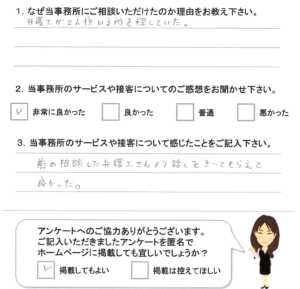 1. なぜ当事務所にご相談いただけたのか理由をお教え下さい。
弁護士が三人体いる所を探していた。
2. 当事務所のサービスや接客についてのご感想をお聞かせ下さい。
✓ 非常に良かった 良かった 普通 悪かった
3. 当事務所のサービスや接客について感じたことをご記入下さい。
前の相談した弁護士さんより話しをきいてもらえて
良かった。
アンケートへのご協力ありがとうございます。
ご記入いただきましたアンケートを匿名で
ホームページに掲載しても宜しいでしょうか?
✓ 掲載してもよい 掲載は控えてほしい